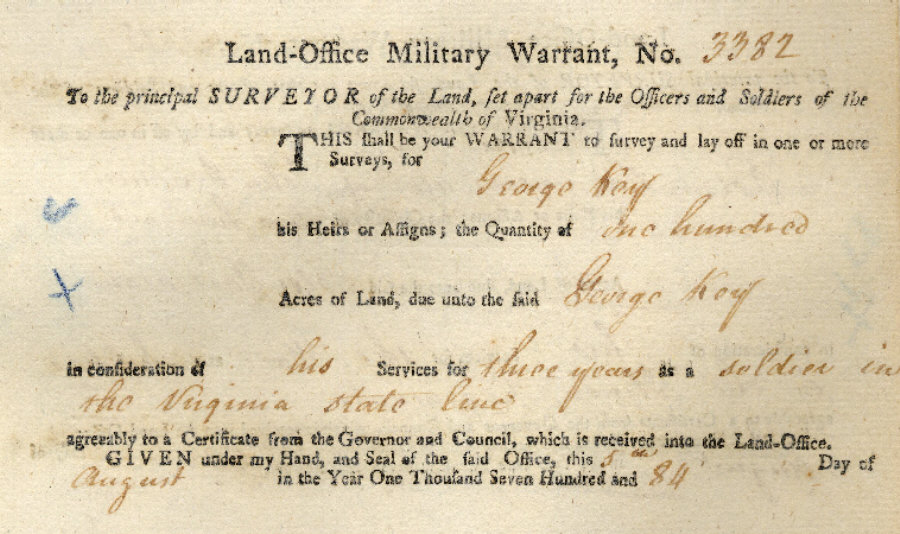 Land-Office Military Warrant, No. 3382
To the principal SURVEYOR of the Land, ſet apart for the Officers and Soldiers of the
Commonwealth of Virginia.
THIS ſhall be your WARRANT to ſurvey and lay off in one or more
Surveys, for
George Key
his Heirs or Aſſigns; the Quantity of one hundred
Acres of Land, due unto the ſaid George Key
in conſideration of his Services for three years as a soldier in
the Virginia state line
agreeably to a Certificate from the Governor and Council, which is received into the Land-Office.
GIVEN under my Hand, and Seal of the ſaid Office, this 5th Day of
August in the Year One Thouſand Seven Hundred and 84